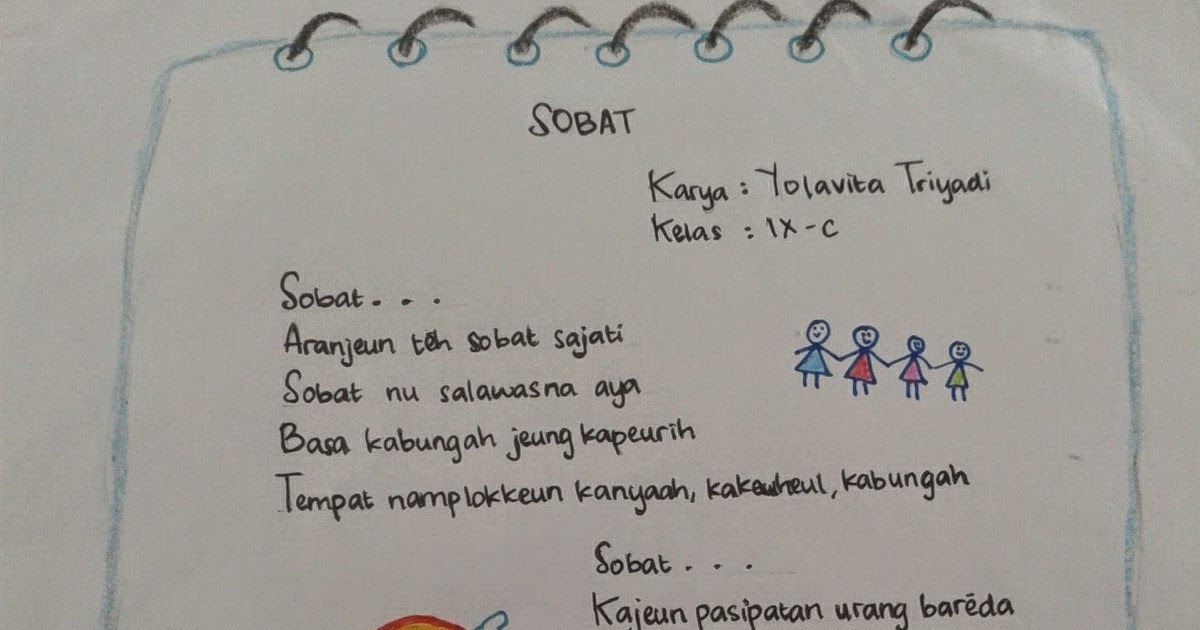 SOBAT
Karya : Yolavita Triyadi
Kelas : IX-C
Sobat...
Aranjeun téh sobat sajati
Sobat nu salawasna aya
Basa kabungah jeung kapeurih
Tempat namplokkeun kanyaah, kakeuheul, kabungah
Sobat...
Kajeun pasipatan urang barēda